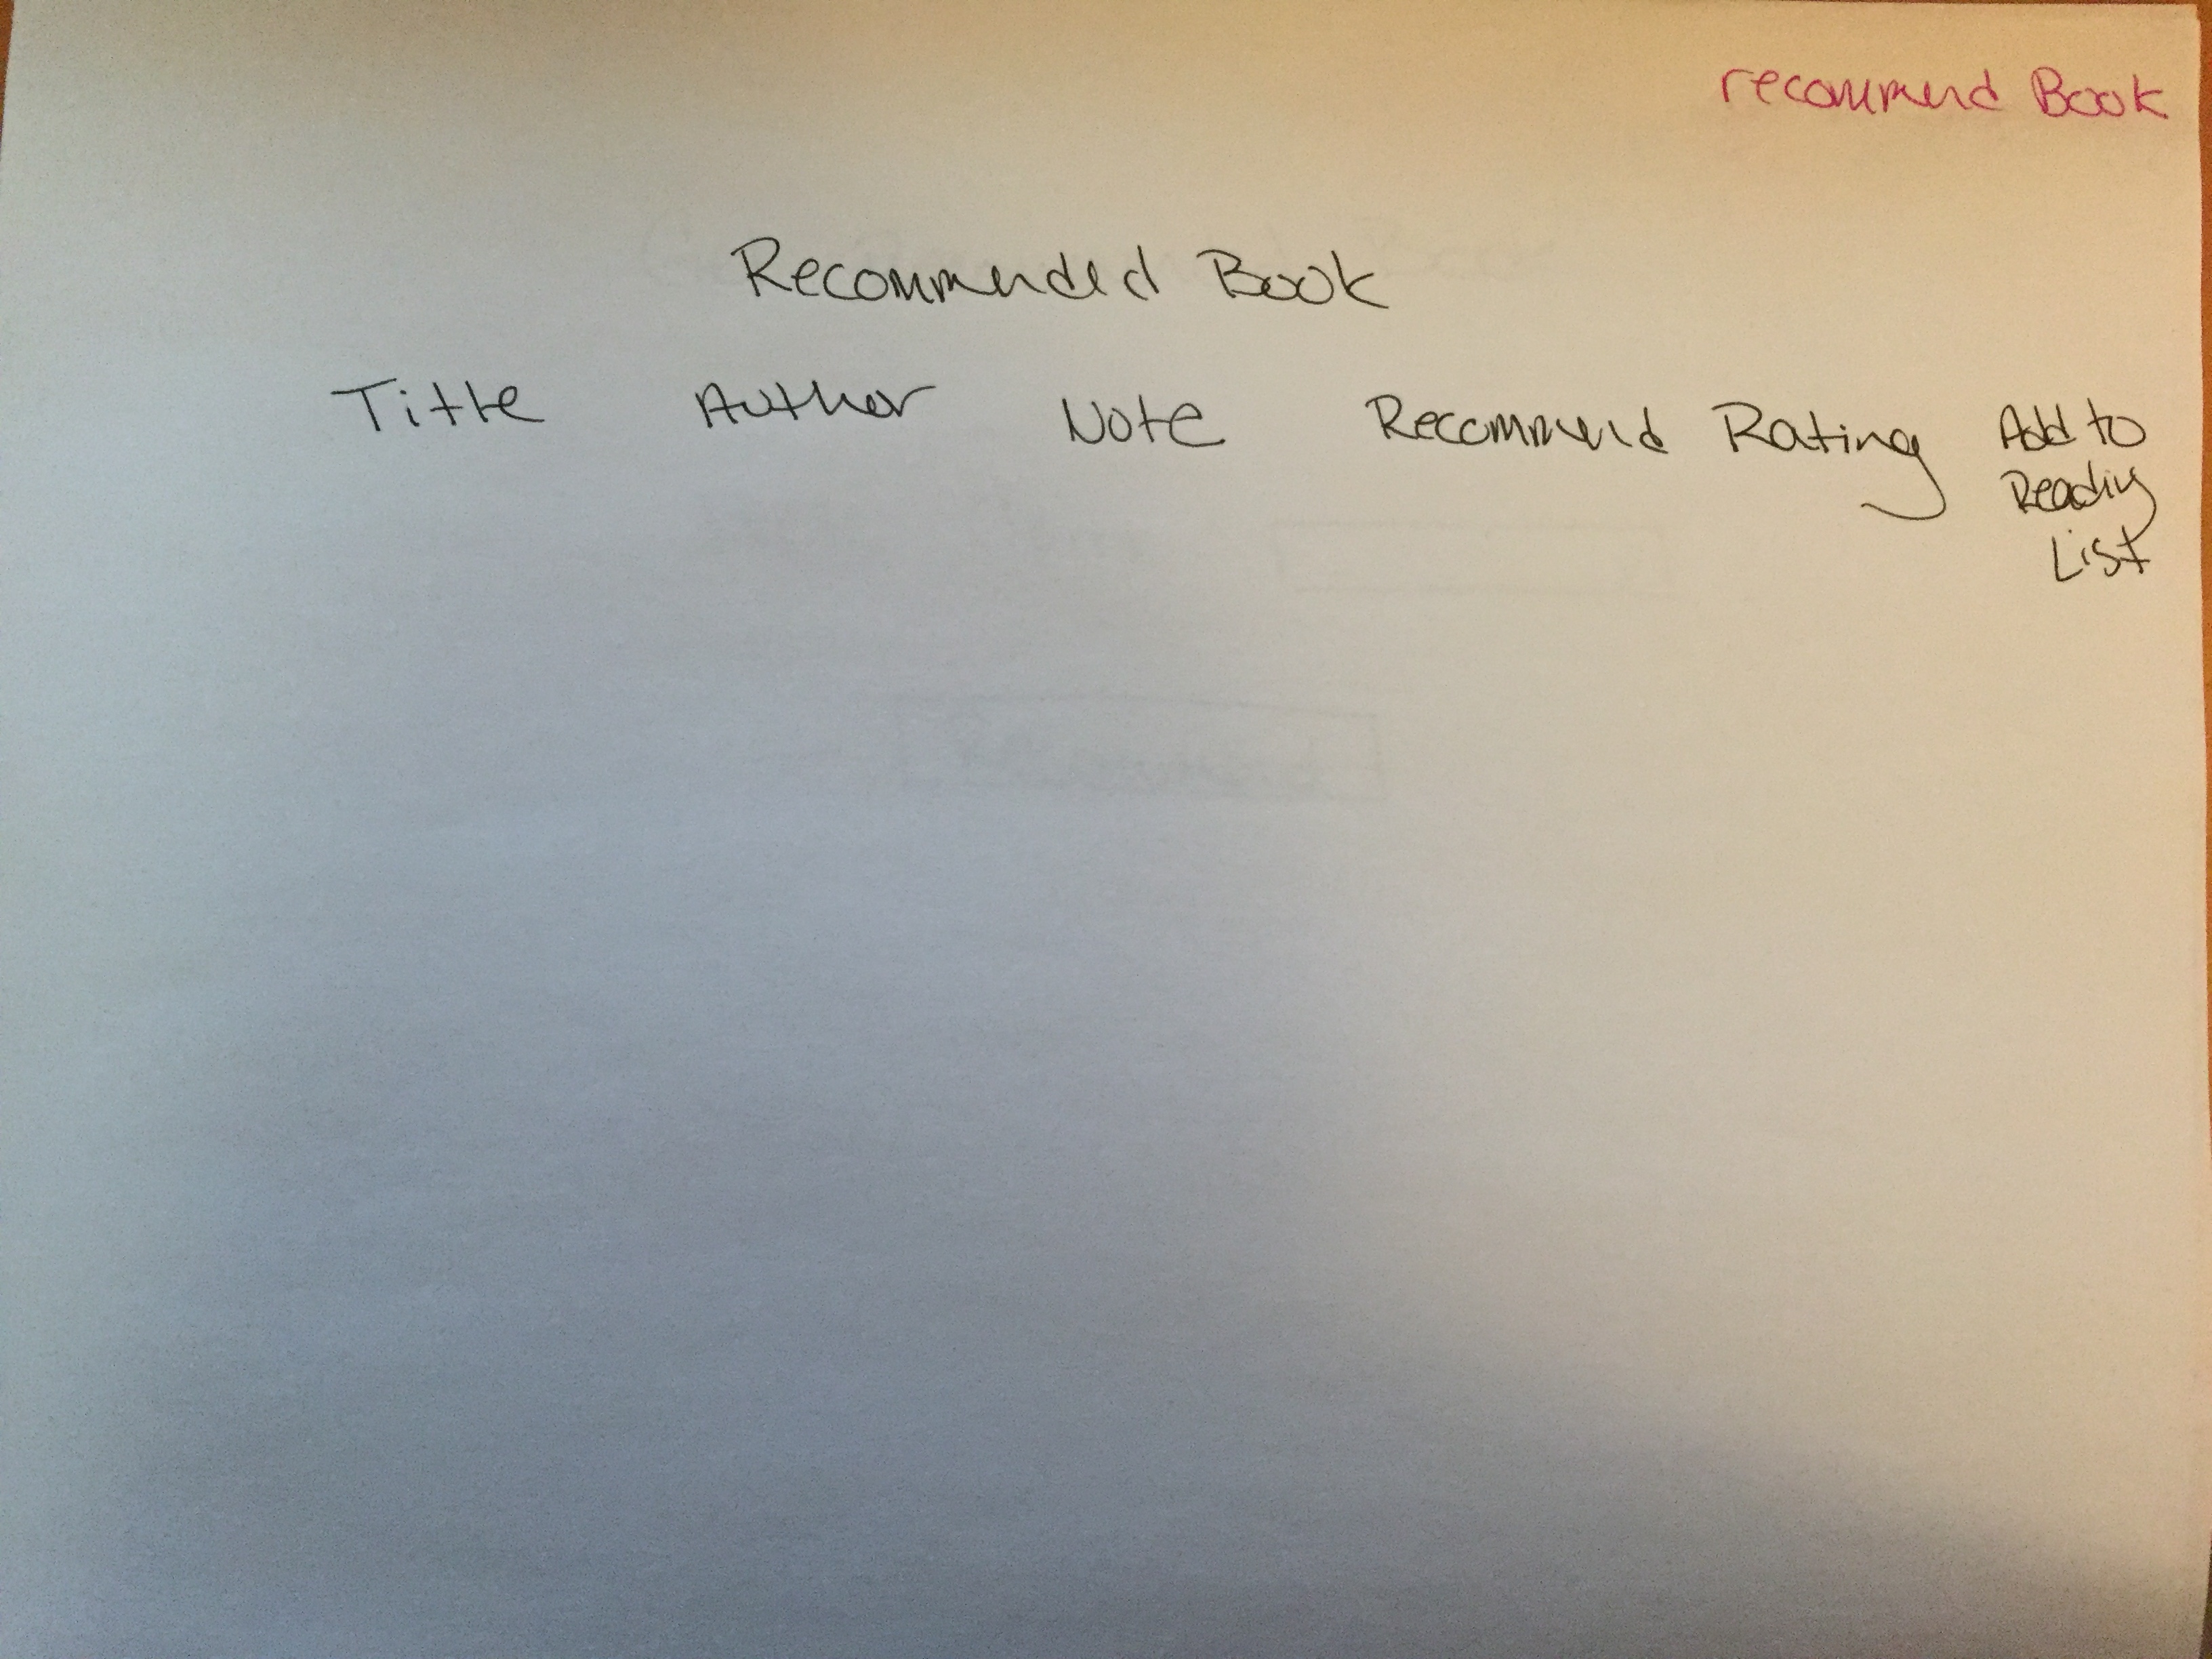 recommend Book
Recommended Book
Title Author Note Recommend Rating Add to
Reading
List